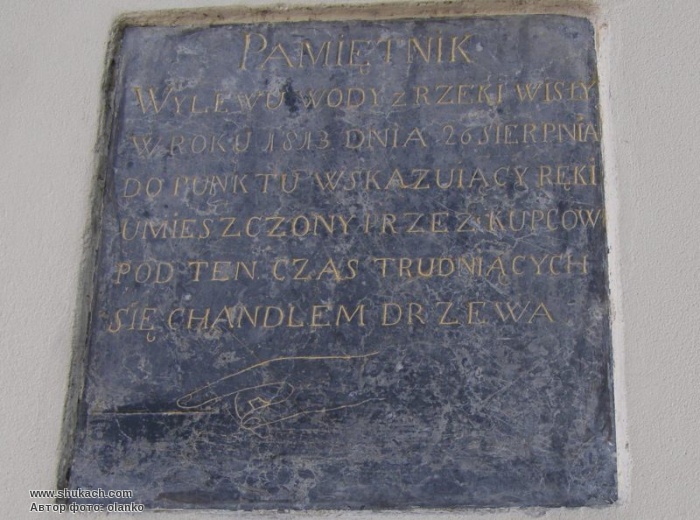 PAMIĘTNIK
WYLEWU WODY z RZEKI WISŁY
W ROKU 1813 DNIA 26 SIERPNIA
DO PUNKTU WSKAZUIĄCY RĘKI
UMIESZCZONY PRZEZ KUPCÓW
POD TEN CZAS TRUDNIĄCYCH
SIĘ CHANDLEM DRZEWA
www.shukach.com
Автор фото: olanko